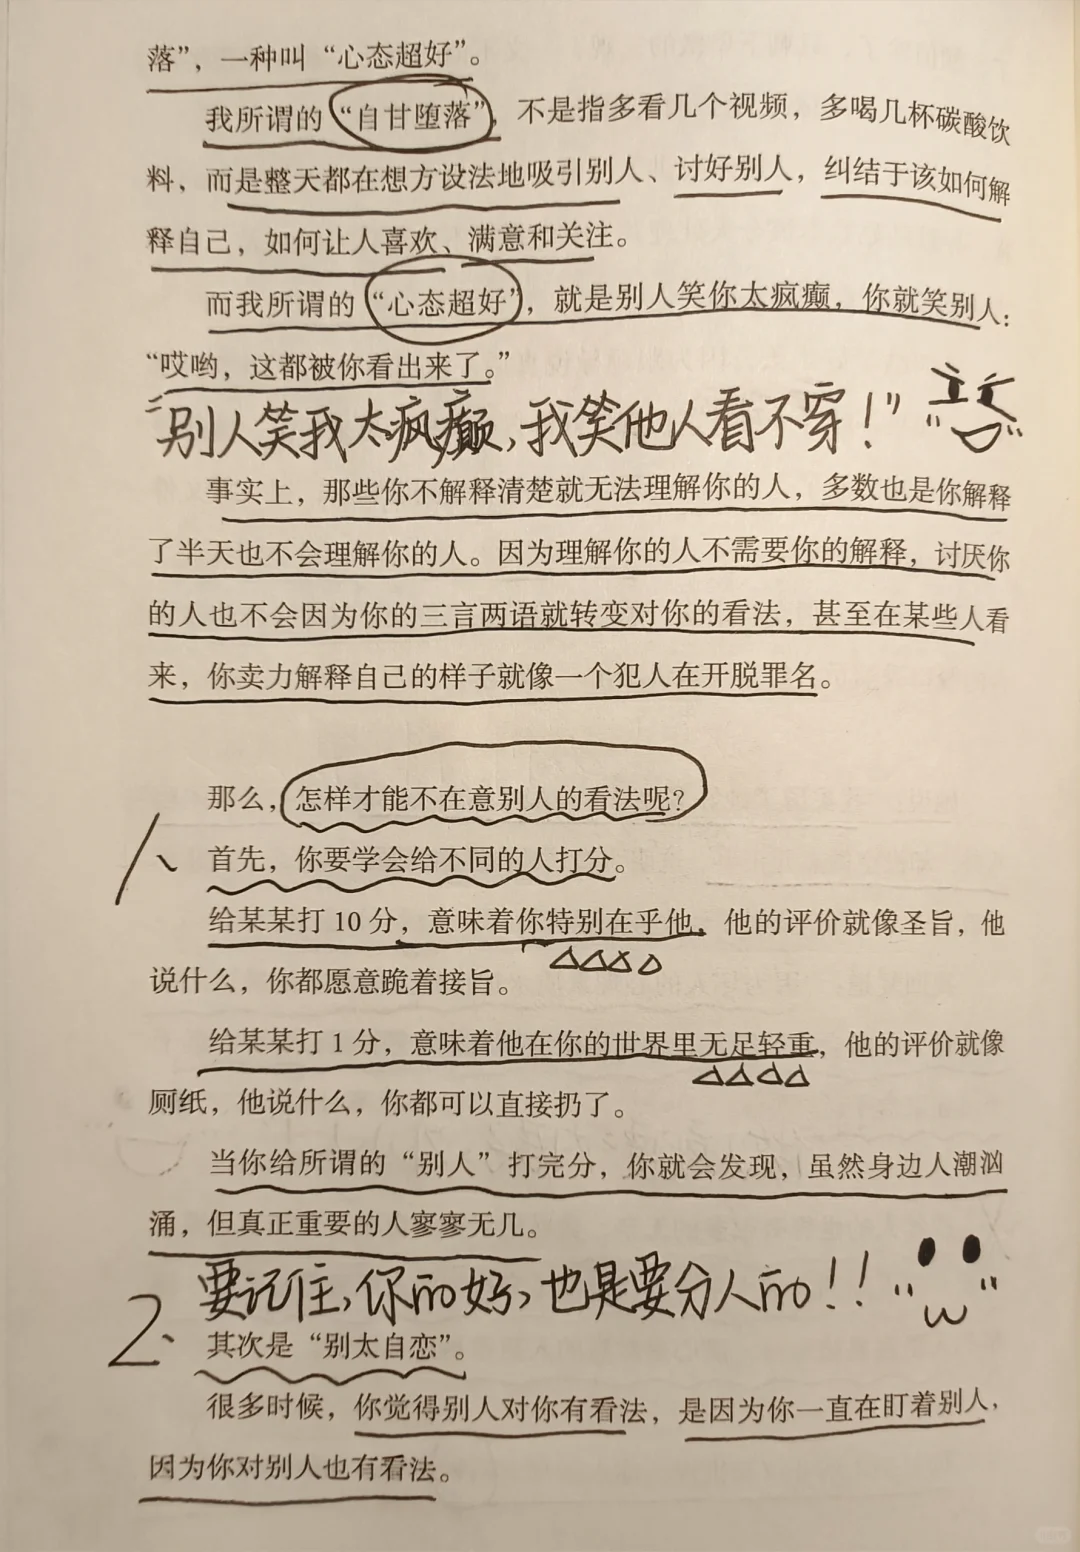 落”，一种叫“心态超好”。
我所谓的“自甘堕落”，不是指多看几个视频，多喝几杯碳酸饮
料，而是整天都在想方设法地吸引别人、讨好别人，纠结于该如何解
释自己，如何让人喜欢、满意和关注。
而我所谓的“心态超好”，就是别人笑你太疯癫，你就笑别人：
“哎哟，这都被你看出来了。”
“别人笑我太疯癫，我笑他人看不穿！”
事实上，那些你不解释清楚就无法理解你的人，多数也是你解释
了半天也不会理解你的人。因为理解你的人不需要你的解释，讨厌你
的人也不会因为你的三言两语就转变对你的看法，甚至在某些人看
来，你卖力解释自己的样子就像一个犯人在开脱罪名。
那么，怎样才能不在意别人的看法呢？
1、首先，你要学会给不同的人打分。
给某某打 10 分，意味着你特别在乎他，他的评价就像圣旨，他
说什么，你都愿意跪着接旨。
给某某打 1 分，意味着他在你的世界里无足轻重，他的评价就像
厕纸，他说什么，你都可以直接扔了。
当你给所谓的“别人”打完分，你就会发现，虽然身边人潮汹
涌，但真正重要的人寥寥无几。
要记住，你的好，也是要分人的！！
2、其次是“别太自恋”。
很多时候，你觉得别人对你有看法，是因为你一直在盯着别人，
因为你对别人也有看法。